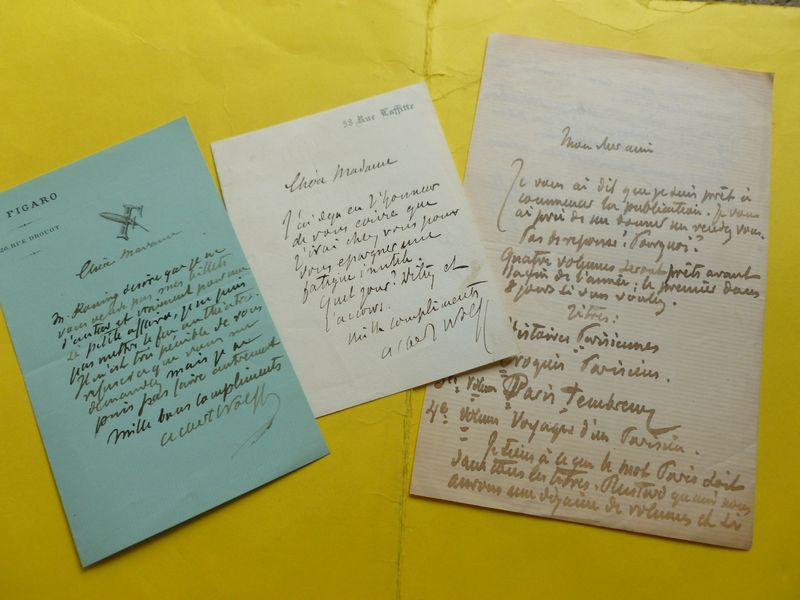 FIGARO
26, RUE DROUOT
Chère Madame
M. désire que je ne
vous vende pas mes billets
d'auteur et vraiment pour une
si petite affaire, je ne puis
pas mettre le feu au théâtre.
Il m'est très pénible de vous
refuser ce que vous me
demandez mais je ne
puis pas faire autrement
Mille bons compliments
Albert Wolff
58 Rue Laffitte
Chère Madame
J'ai déjà eu l'honneur
de vous écrire que
j'irai chez vous pour
vous épargner une
fatigue inutile.
Quel jour? Dites et
j'accours.
Mille compliments
Albert Wolff
Mon cher ami
Je vous ai dit que je suis prêt à
commencer la publication. Je vous
ai prié de me donner un rendez vous.
Pas de réponse! Pourquoi?
Quatre volumes seront prêts avant
la fin de l'année; le premier dans
8 jours si vous voulez.
Titres:
Histoires Parisiennes
Croquis Parisiens.
3e Volume Paris
4e Volume Voyages d'un Parisien.
Je tiens à ce que le mot Paris soit
dans tous les titres. Plus tard quand nous
aurons une dizaine de volumes et si